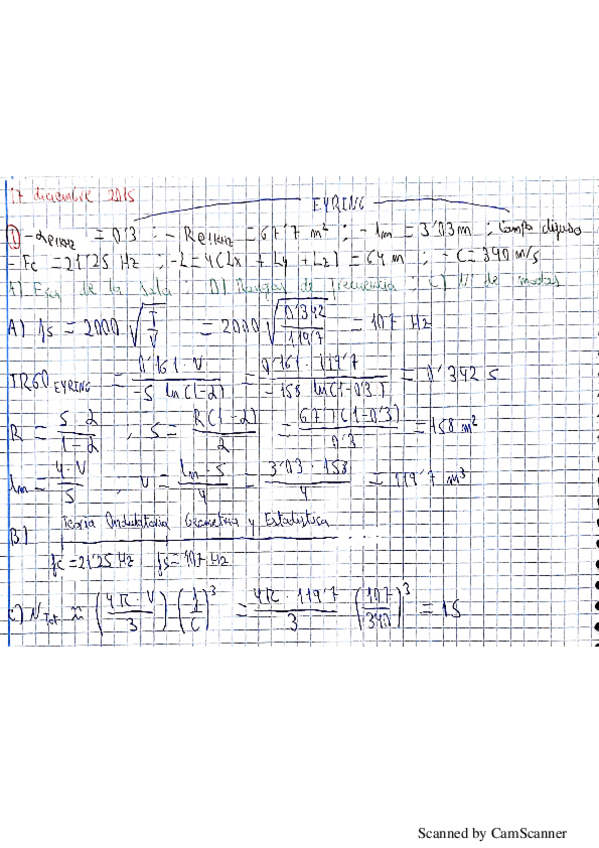 17 diciembre 2015
EYRING
① - α₍₁KHz₎ = 0'3 ; - R₍₁KHz₎ = 67'7 m² ; - lm = 3'03 m ; Campo difuso
- Fc = 21'25 Hz ; - L = 4(Lx + Ly + Lz) = 64 m ; - C = 340 m/s
de la Sala ; B) Rangos de frecuencia ; C) Nº de modos
A) fs = 2000 √(T/V) = 2000 √(0'342/119'7) = 107 Hz
TR60 EYRING = 0'161 · V / -S ln(1-α) = 0'161 · 119'7 / -158 ln(1-0'3) = 0'342 s
R = S·α / 1-α ; S = R(1-α) / α = 67'7(1-0'3) / 0'3 = 158 m²
lm = 4·V / S , V = lm·S / 4 = 3'03 · 158 / 4 = 119'7 m³
B) Teoría Ondulatoria Geometría y Estadística
fc = 21'25 Hz fs = 107 Hz
C) N Tot ≈ (4π · V / 3) · (f / C)³ = 4π · 119'7 / 3 · (107 / 340)³ = 15
Scanned by CamScanner